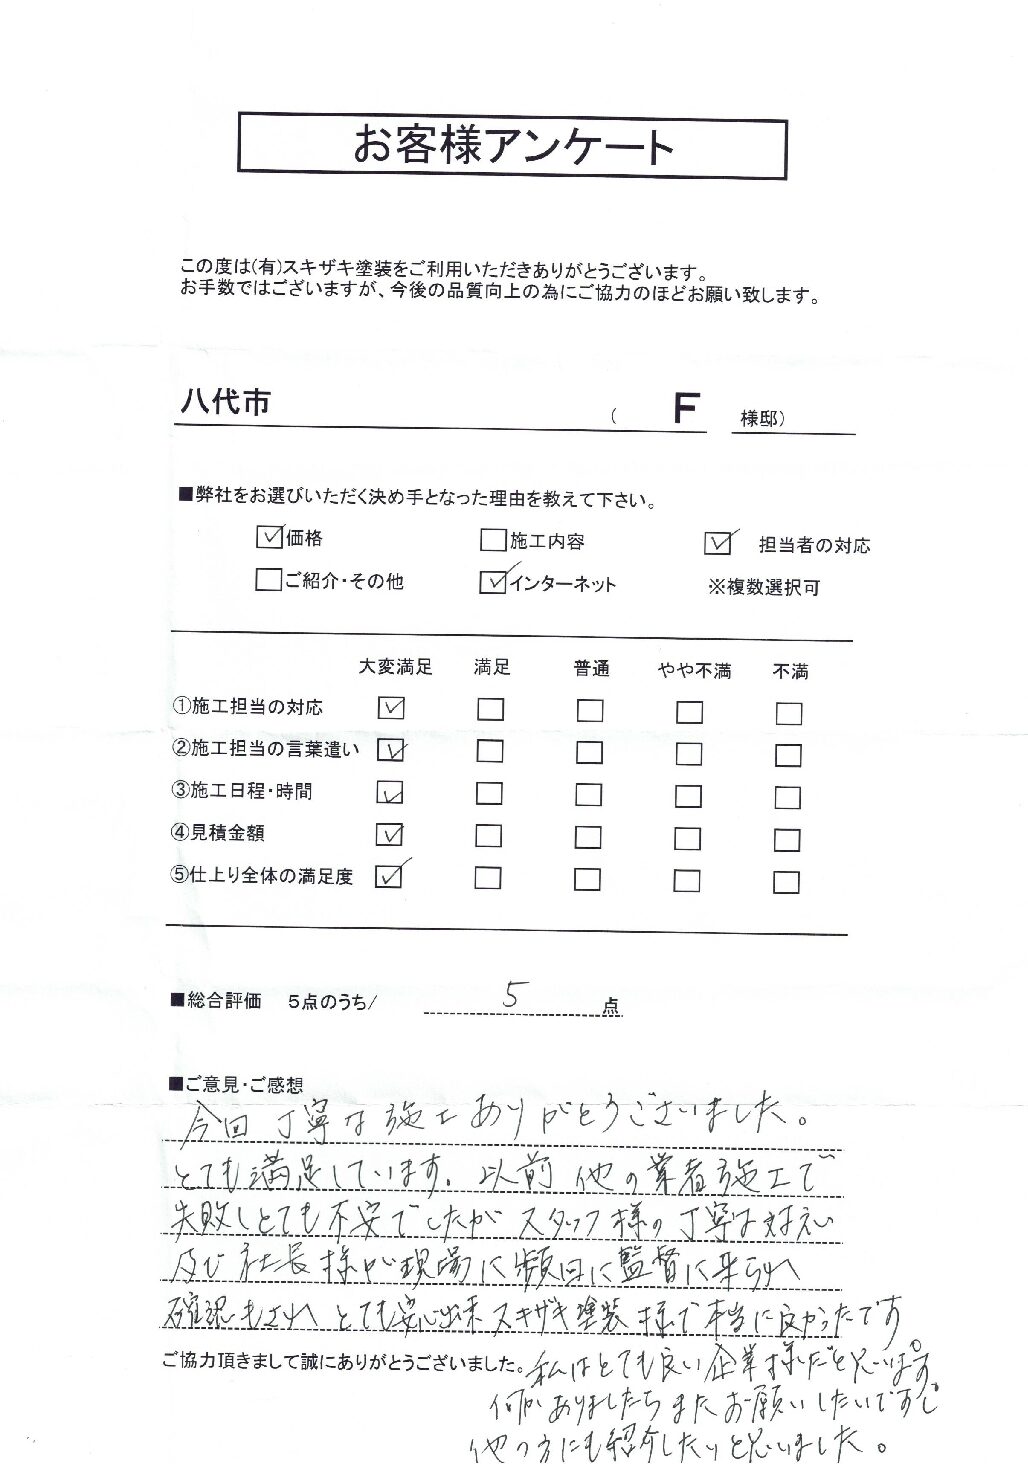 お客様アンケート
この度は(有)スキザキ塗装をご利用いただきありがとうございます。
お手数ではございますが、今後の品質向上の為にご協力のほどお願い致します。
八代市 ( F 様邸)
■弊社をお選びいただく決め手となった理由を教えて下さい。
☑価格 □施工内容 ☑ 担当者の対応
□ご紹介・その他 ☑インターネット ※複数選択可
大変満足 満足 普通 やや不満 不満
①施工担当の対応 ☑ □ □ □ □
②施工担当の言葉遣い ☑ □ □ □ □
③施工日程・時間 ☑ □ □ □ □
④見積金額 ☑ □ □ □ □
⑤仕上り全体の満足度 ☑ □ □ □ □
■総合評価 5点のうち/ 5 点
■ご意見・ご感想
今回 丁寧な施工ありがとうございました。
とても満足しています。以前 他の業者施工で
失敗しとても不安でしたが スタッフ様の丁寧な対応
及び 社長様が現場に頻回に監督に来られ
確認もされ とても安心出来 スキザキ塗装様で本当に良かったです
ご協力頂きまして誠にありがとうございました。
私はとても良い企業様だと思います。
何かありましたらまたお願いしたいですし
他の方にも紹介したいと思いました。